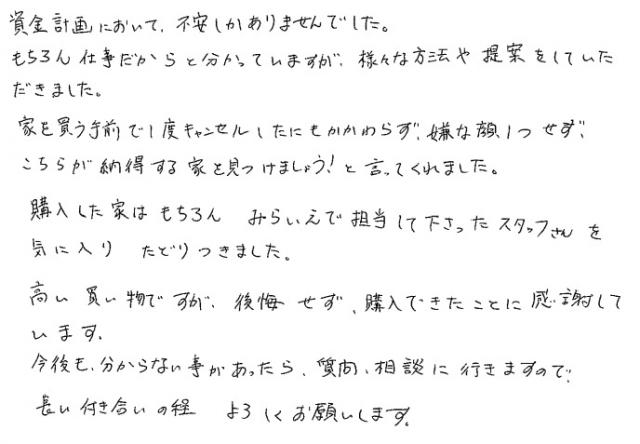 資金計画において、不安しかありませんでした。
もちろん仕事だからと分かっていますが、様々な方法や提案をしていた
だきました。
家を買う手前で1度キャンセルしたにもかかわらず、嫌な顔1つせず、
こちらが納得する家を見つけましょう!と言ってくれました。
購入した家はもちろん みらいえで担当して下さったスタッフさんを
気に入り たどりつきました。
高い買い物ですが、後悔せず、購入できたことに感謝して
います。
今後も、分からない事があったら、質問、相談に行きますので、
長い付き合いの経 よろしくお願いします。